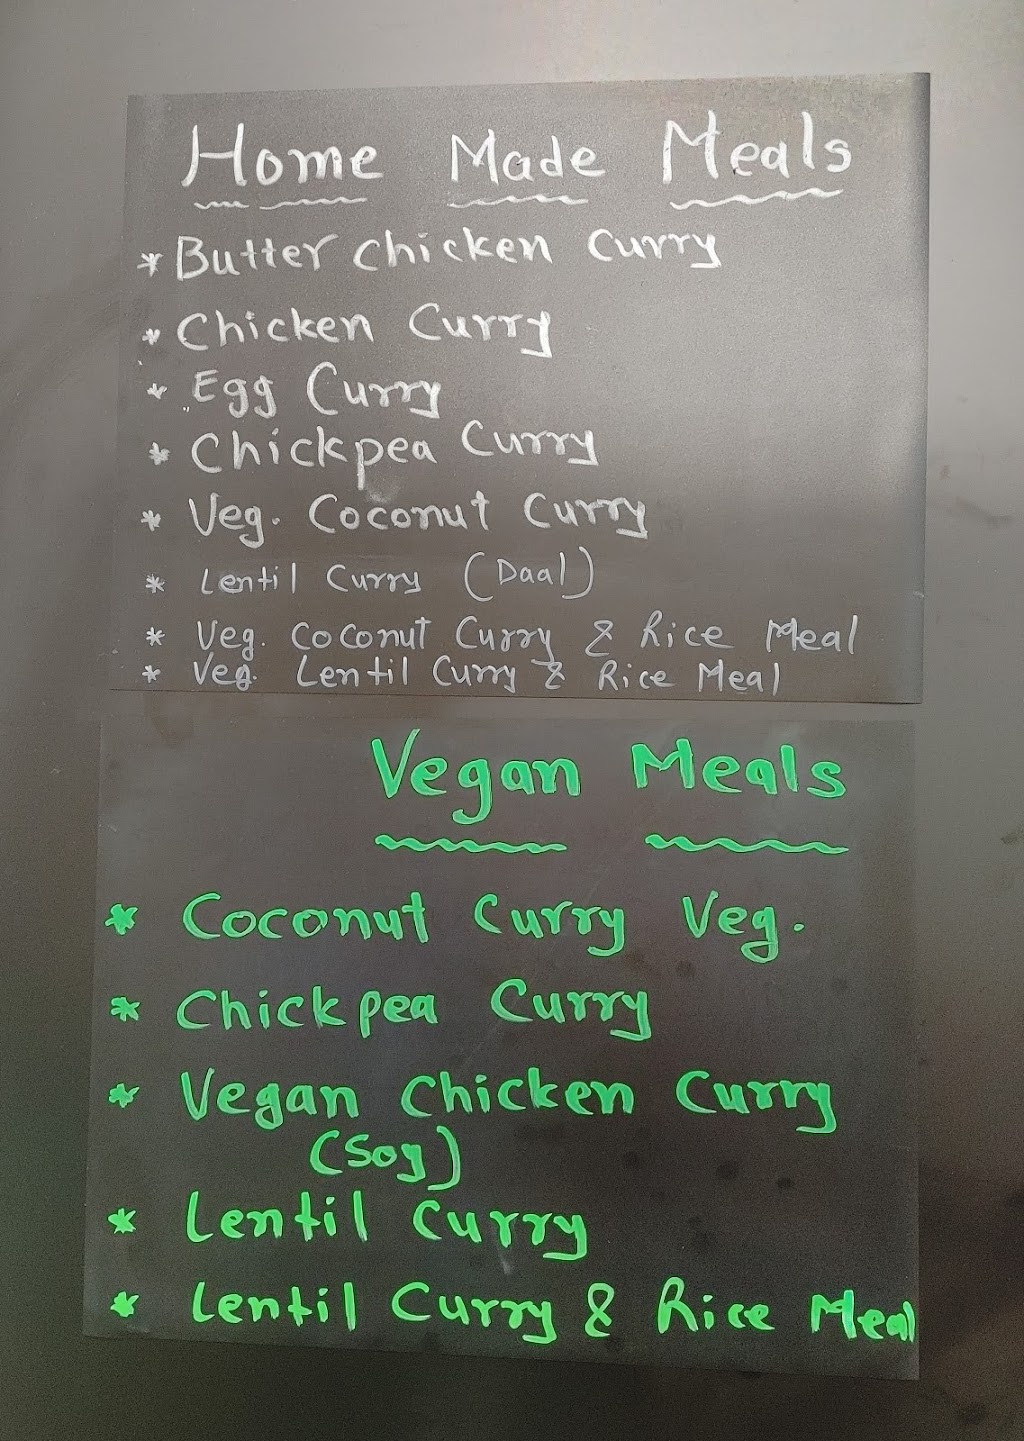 Home Made Meals
* Butter Chicken Curry
* Chicken Curry
* Egg Curry
* Chickpea Curry
* Veg. Coconut Curry
* Lentil Curry (Daal)
* Veg. Coconut Curry & Rice Meal
* Veg. Lentil Curry & Rice Meal
Vegan Meals
* Coconut Curry Veg.
* Chickpea Curry
* Vegan Chicken Curry
(Soy)
* Lentil Curry
* Lentil Curry & Rice Meal